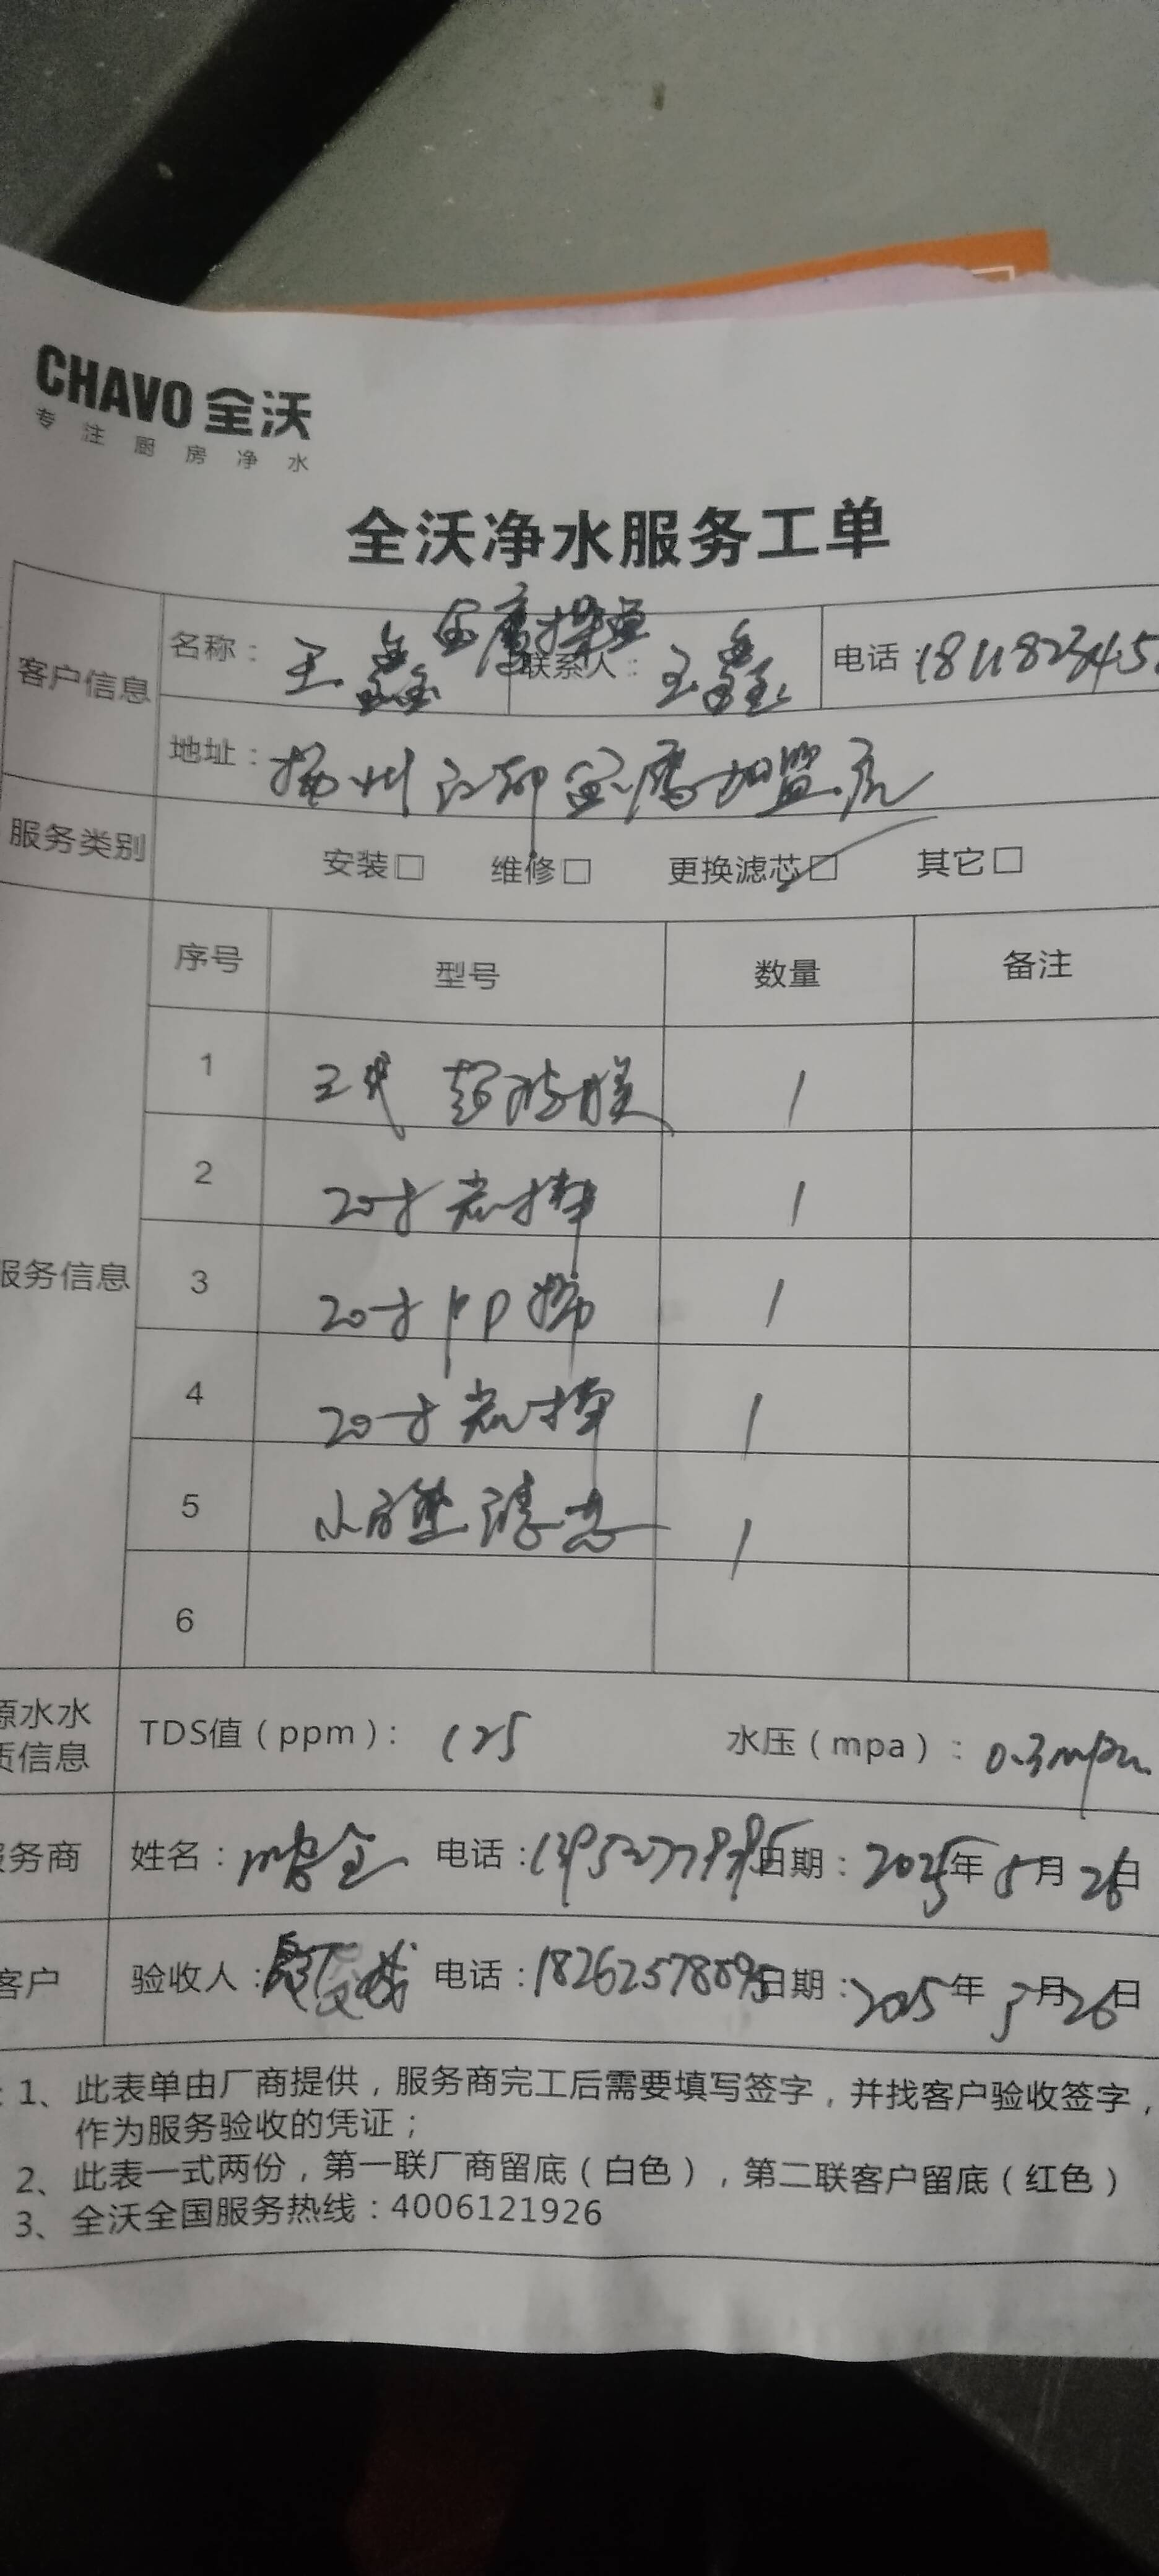 CHAVO 全沃
专注厨房净水
全沃净水服务工单
客户信息
名称： 王鑫 联系人： 王鑫 电话
地址： 扬州江都 加盟店
服务类别 安装□ 维修□ 更换滤芯□ 其它□
服务信息
序号 型号 数量 备注
1 三代 超滤膜 1
2 20寸炭棒 1
3 20寸PP棉 1
4 20寸炭棒 1
5 1
6
源水水质信息 TDS值（ppm）： 125 水压（mpa）： 0.3mpa
服务商 姓名： 电话： 日期： 2025年5月26日
客户 验收人： 电话： 日期： 2025年5月26日
1、此表单由厂商提供，服务商完工后需要填写签字，并找客户验收签字，
作为服务验收的凭证；
2、此表一式两份，第一联厂商留底（白色），第二联客户留底（红色）
3、全沃全国服务热线：4006121926